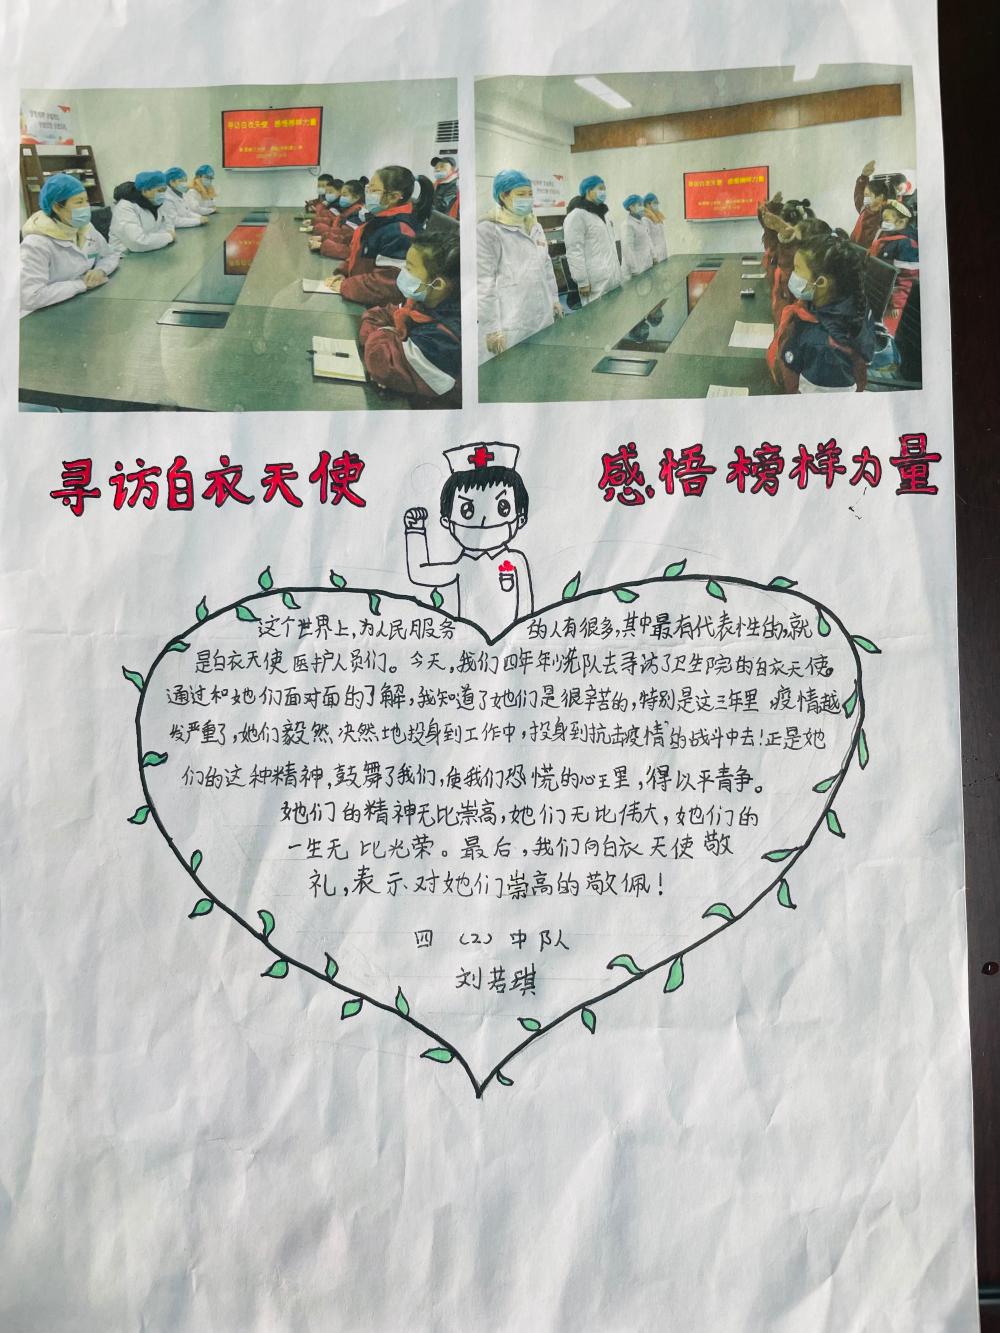 寻访白衣天使 感悟榜样力量
寻访白衣天使 感悟榜样力量
寻访白衣天使
感悟榜样力量
这个世界上,为人民服务的人有很多,其中最有代表性的,就
是白衣天使医护人员们。今天,我们四年年小先队去寻访了卫生院的白衣天使。
通过和她们面对面的了解,我知道了她们是很辛苦的,特别是这三年里 疫情越
发严重了,她们毅然决然地投身到工作中,投身到抗击疫情的战斗中去!正是她
们的这种精神,鼓舞了我们,使我们恐慌的心里,得以平静。
她们的精神无比崇高,她们无比伟大,她们的
一生无比光荣。最后,我们向白衣天使敬
礼,表示对她们崇高的敬佩!
四(2)中队
刘若琪